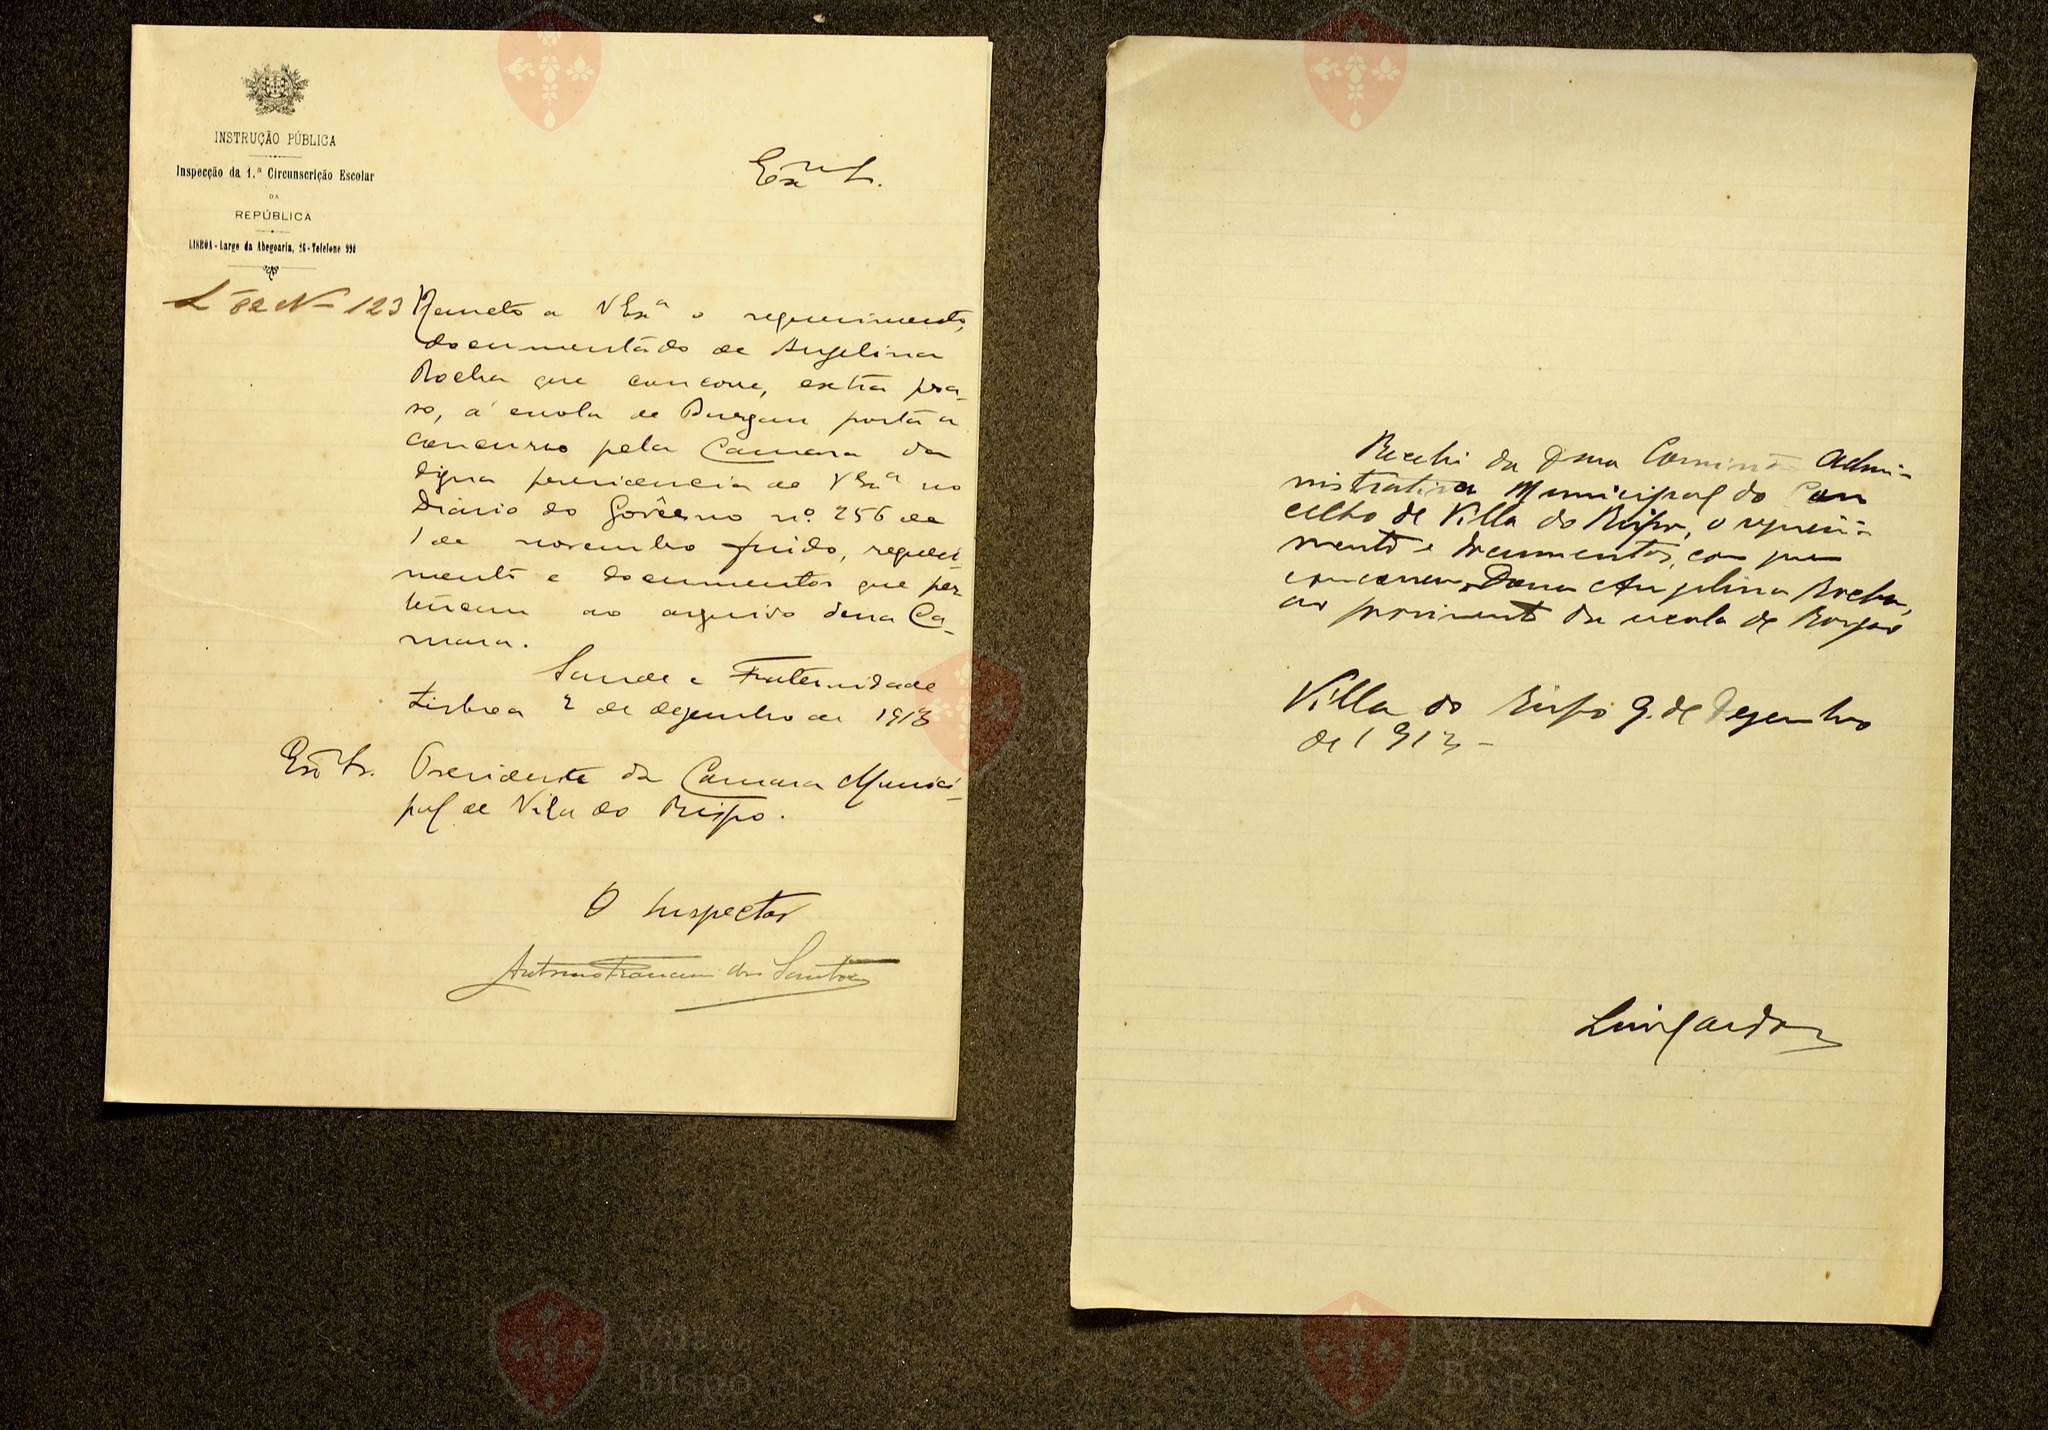 INSTRUÇÃO PÚBLICA
Inspecção da 1.ª Circunscrição Escolar
DA
REPÚBLICA
LISBOA - Largo da Abegoaria, 26 - Telefone 998
Exmº Sr.
L 82 Nº 123
Remeto a V Exª o requerimento,
documentado de Angelina
Rocha que concorre, extra pra-
so, á escola de Burgau posta a
concurso pela Camara da
digna presidencia de V Exª no
Diário do Govêrno nº 256 de
1 de novembro findo, requeri-
mento e documentos que per-
tencem ao arquivo dessa Ca-
mara.
Saude e Fraternidade
Lisboa 2 de dezembro de 1913
Exmº Sr. Presidente da Camara Munici-
pal de Vila do Bispo.
O Inspector
Antonio Francisco dos Santos
Recebi da Exma Comissão Admi-
nistrativa Municipal do Con
celho de Villa do Bispo, o requeri-
mento e documentos, com que
concorreu Dona Angelina Rocha,
ao provimento da escola de Burgau
Villa do Bispo 9 de Dezembro
de 1913 -
Vila do
Bispo
Vila do
Bispo
Vila do
Bispo
Vila do
Bispo